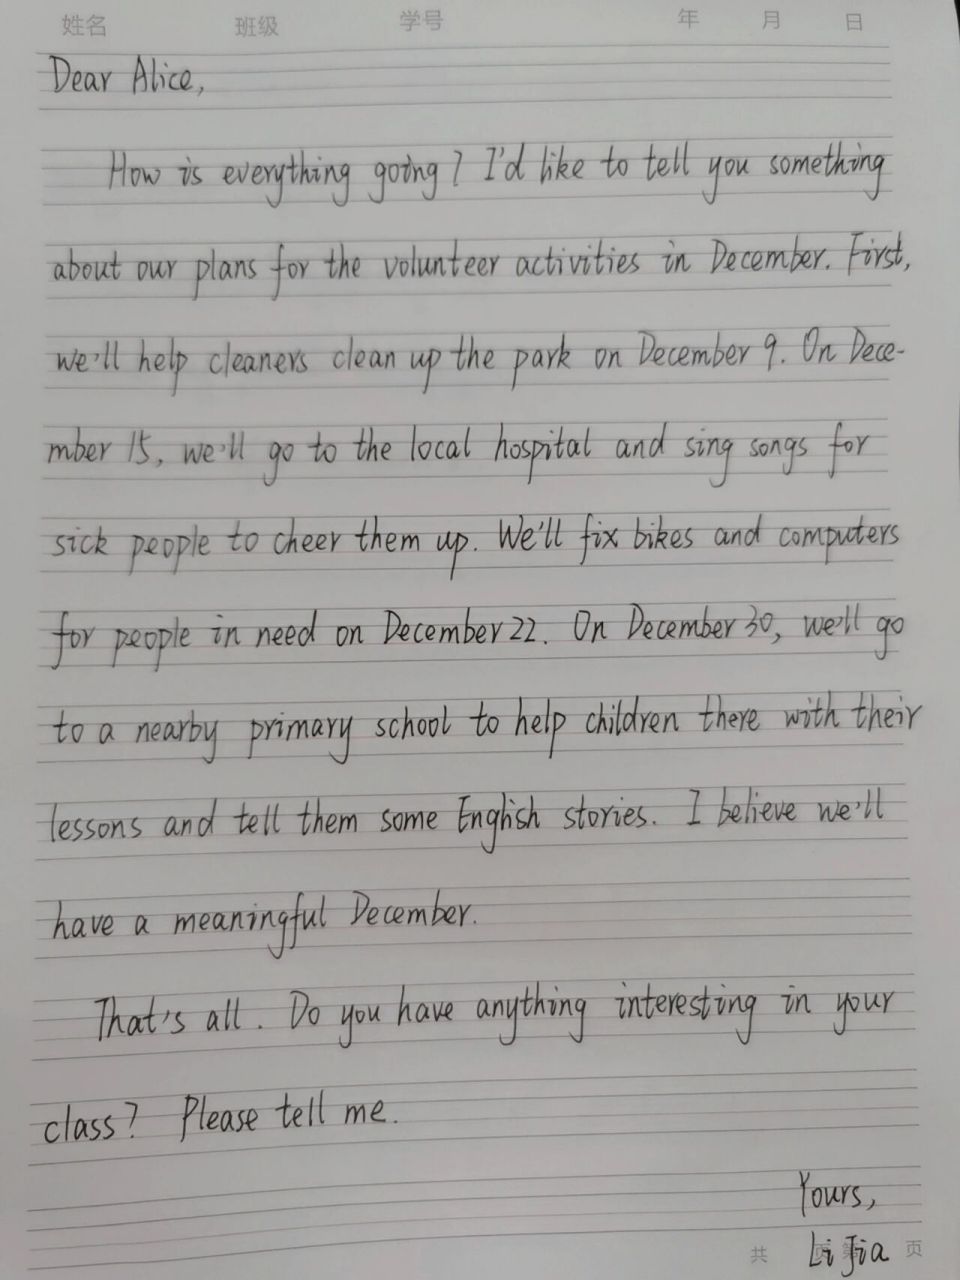 姓名 班级 学号 年 月 日
Dear Alice,
How is everything going? I'd like to tell you something
about our plans for the volunteer activities in December. First,
we'll help cleaners clean up the park on December 9. On Dece-
mber 15, we'll go to the local hospital and sing songs for
sick people to cheer them up. We'll fix bikes and computers
for people in need on December 22. On December 30, we'll go
to a nearby primary school to help children there with their
lessons and tell them some English stories. I believe we'll
have a meaningful December.
That's all. Do you have anything interesting in your
class? Please tell me.
Yours,
Li Jia
共 页 第 页